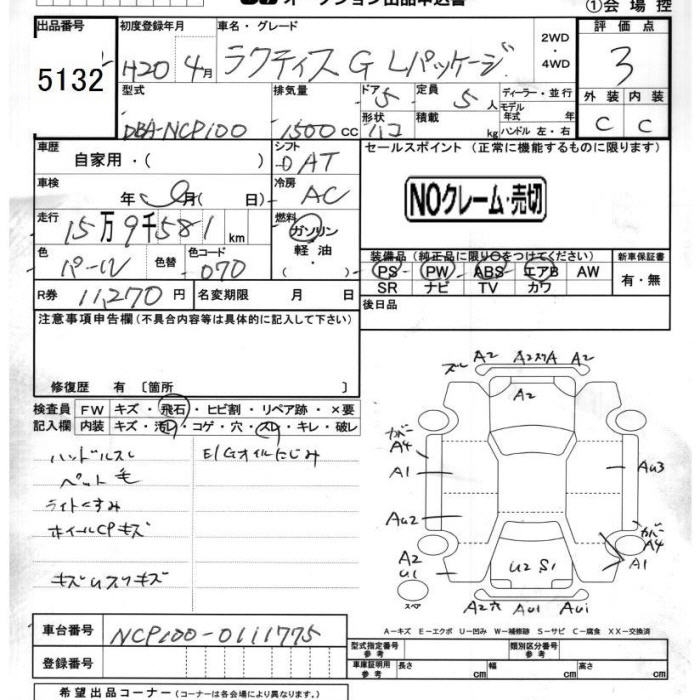 オークション出品申込書
①会場控
出品番号 初度登録年月 車名・グレード 2WD ・ 4WD 評価点
5132 H20 4月 ラクティス G Lパッケージ 3
型式 排気量 ドア 5 定員 5人 ディーラー・並行 外装 内装
DBA-NCP100 1500cc 形状 ハコ 積載 kg モデル年式 年 ハンドル 左・右 C C
車歴 自家用・( ) シフト AT セールスポイント (正常に機能するものに限ります)
車検 年 月( 日) 冷房 AC
NOクレーム・売切
走行 15万9千581km 燃料 ガソリン 軽油 ・( )
色 パール 色替 色コード 070
装備品(純正品に限り○をつけてください) 新車保証書
PS PW ABS エアB AW 有・無
SR ナビ TV カワ
R券 11,270円 名変期限 月 日 後日品
注意事項申告欄(不具合内容等は具体的に記入して下さい)
修復歴 有〔箇所 〕
検査員 FW キズ・飛石・ヒビ割・リペア跡・×要
記入欄 内装 キズ・汚レ・コゲ・穴・スレ・キレ・破レ
ハンドルスレ E/Gオイルにじみ
ペット毛
ライトくすみ
ホイールCPキズ
キズUスリキズ
A2 A2スリA A2
A2
カバー A4
A1 AU3
AU2
カバー A4
A2 U1 U2 S1 A1
スペア A2穴 AU1 AU1
A-キズ E-エクボ U-凹み W-補修跡 S-サビ C-腐食 XX-交換済
車台番号 NCP100-0111775
型式指定番号 参考 類別区分番号 参考
登録番号
車庫証明用 参考 長さ cm 幅 cm 高さ cm
希望出品コーナー(コーナーは各会場により異なります。)